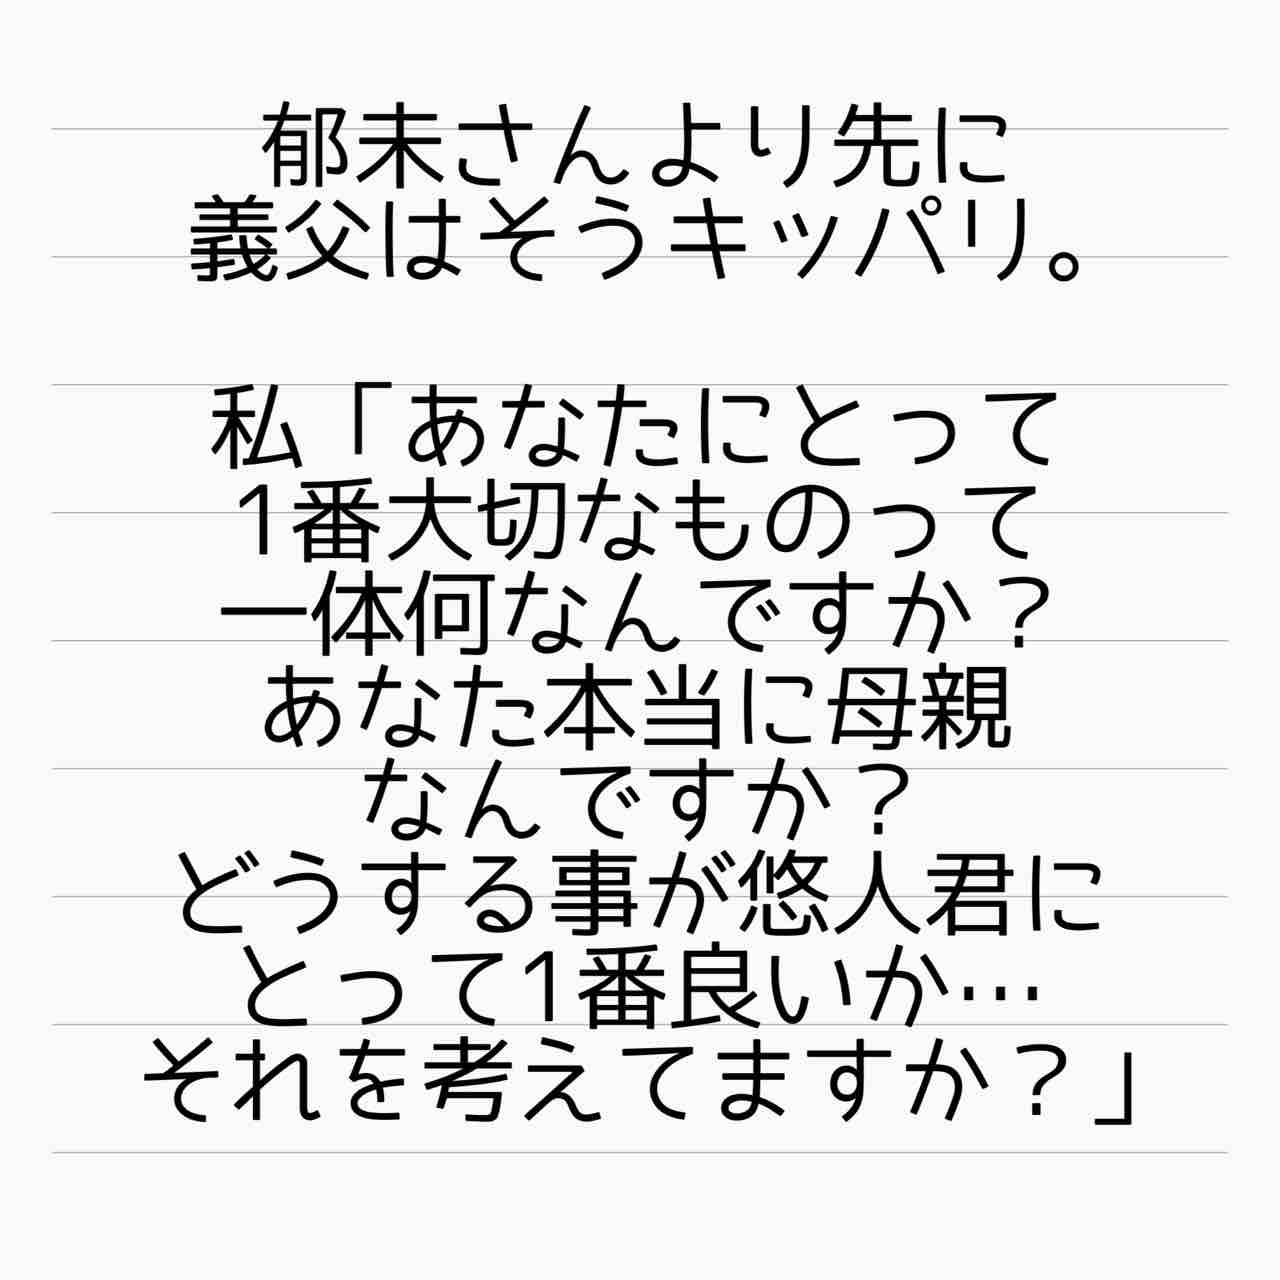 郁未さんより先に
義父はそうキッパリ。
私「あなたにとって
1番大切なものって
一体何なんですか？
あなた本当に母親
なんですか？
どうする事が悠人君に
とって1番良いか…
それを考えてますか？」